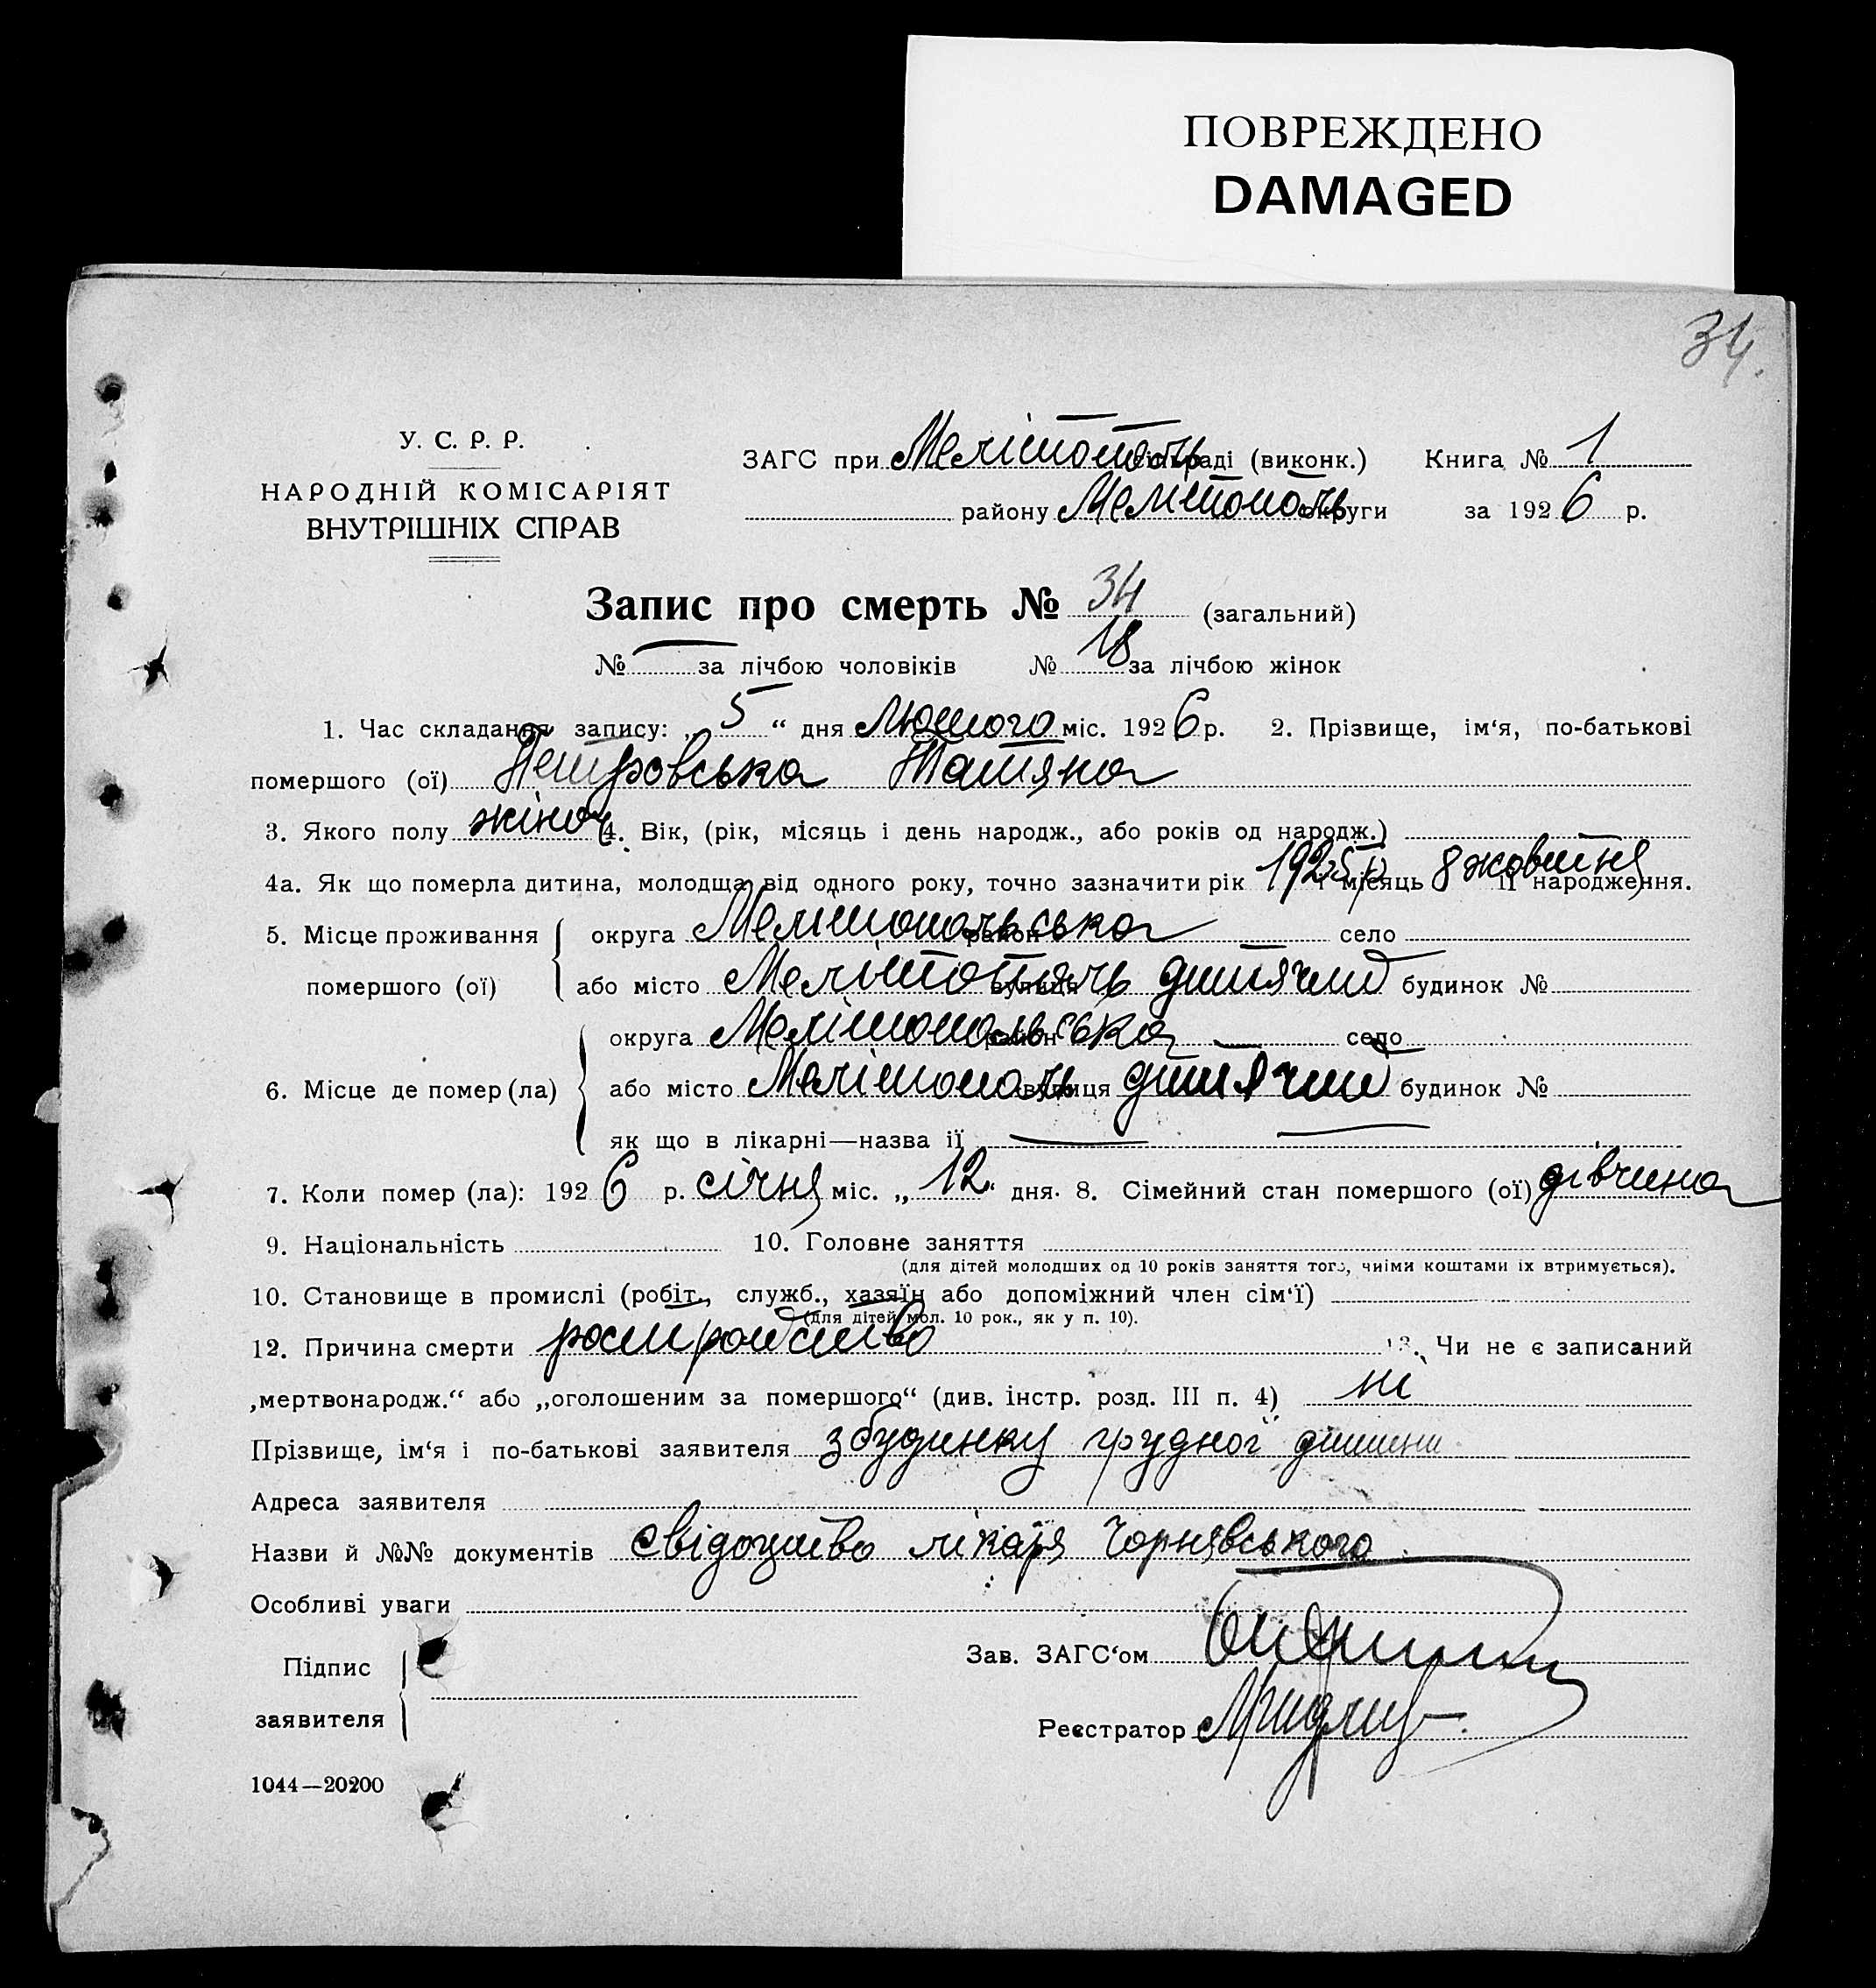 ПОВРЕЖДЕНО
DAMAGED
34.
У. С. Р. Р.
НАРОДНІЙ КОМІСАРІЯТ
ВНУТРІШНІХ СПРАВ
ЗАГС при Мелітополь сільраді (виконк.) Книга № 1
району Мелітополь округи за 1926 р.
Запис про смерть № 34 (загальний)
№ — за лічбою чоловіків № 18 за лічбою жінок
1. Час складання запису: „5“ дня Лютого міс. 1926 р. 2. Прізвище, ім‘я, по-батькові
помершого (ої) Петровська Татяна
3. Якого полу жіноч. 4. Вік, (рік, місяць і день народж., або років од народж.)
4а. Як що померла дитина, молодща від одного року, точно зазначити рік 1925 р і місяць 8 жовтня її народження.
5. Місце проживання помершого (ої) округа Мелітопольська район село
або місто Мелітополь вулиця дитячий будинок №
6. Місце де помер (ла) округа Мелітопольська район село
або місто Мелітополь вулиця дитячий будинок №
як що в лікарні—назва її —
7. Коли помер (ла): 1926 р. січня міс. „12“ дня. 8. Сімейний стан помершого (ої) дівчина
9. Національність 10. Головне заняття
(для дітей молодших од 10 років заняття того, чиіми коштами іх втримується).
10. Становище в промислі (робіт., служб., хазяїн або допоміжний член сім‘ї)
(для дітей мол. 10 рок., як у п. 10).
12. Причина смерти 13. Чи не є записаний
„мертвонародж.“ або „оголошеним за помершого“ (див. інстр. розд. III п. 4) ні
Прізвище, ім‘я і по-батькові заявителя з будинку грудної дитини
Адреса заявителя
Назви й №№ документів свідоцтво лікаря Чорнявського
Особливі уваги
Підпис
заявителя
Зав. ЗАГС‘ом
Реєстратор
1044—20200